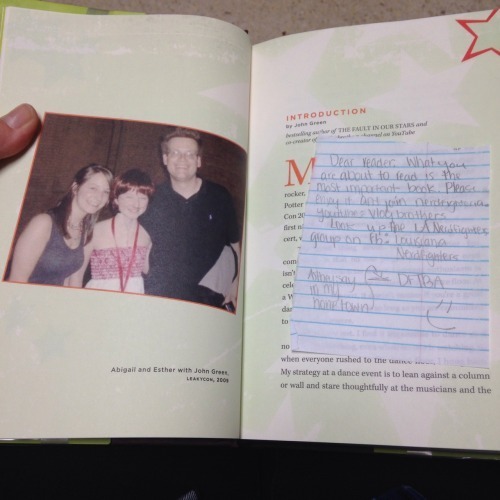 Abigail and Esther with John Green,
LEAKYCON, 2009
INTRODUCTION
by John Green
bestselling author of THE FAULT IN OUR STARS and
channel on YouTube
M
Dear reader, What you
are about to read is the
most important book. Please
enjoy it and join nerdfighteria
Vlogbrothers
the LA Nerdfighter
group on fb: Louisiana
Nerdfighters
in my
hometown
DFTBA
rocker,
Potter
Con 20
first n
cert, w
com
isn't
cele
a W
dan
to
no
when everyone rushed to the dance
My strategy at a dance event is to lean against a column
or wall and stare thoughtfully at the musicians and the